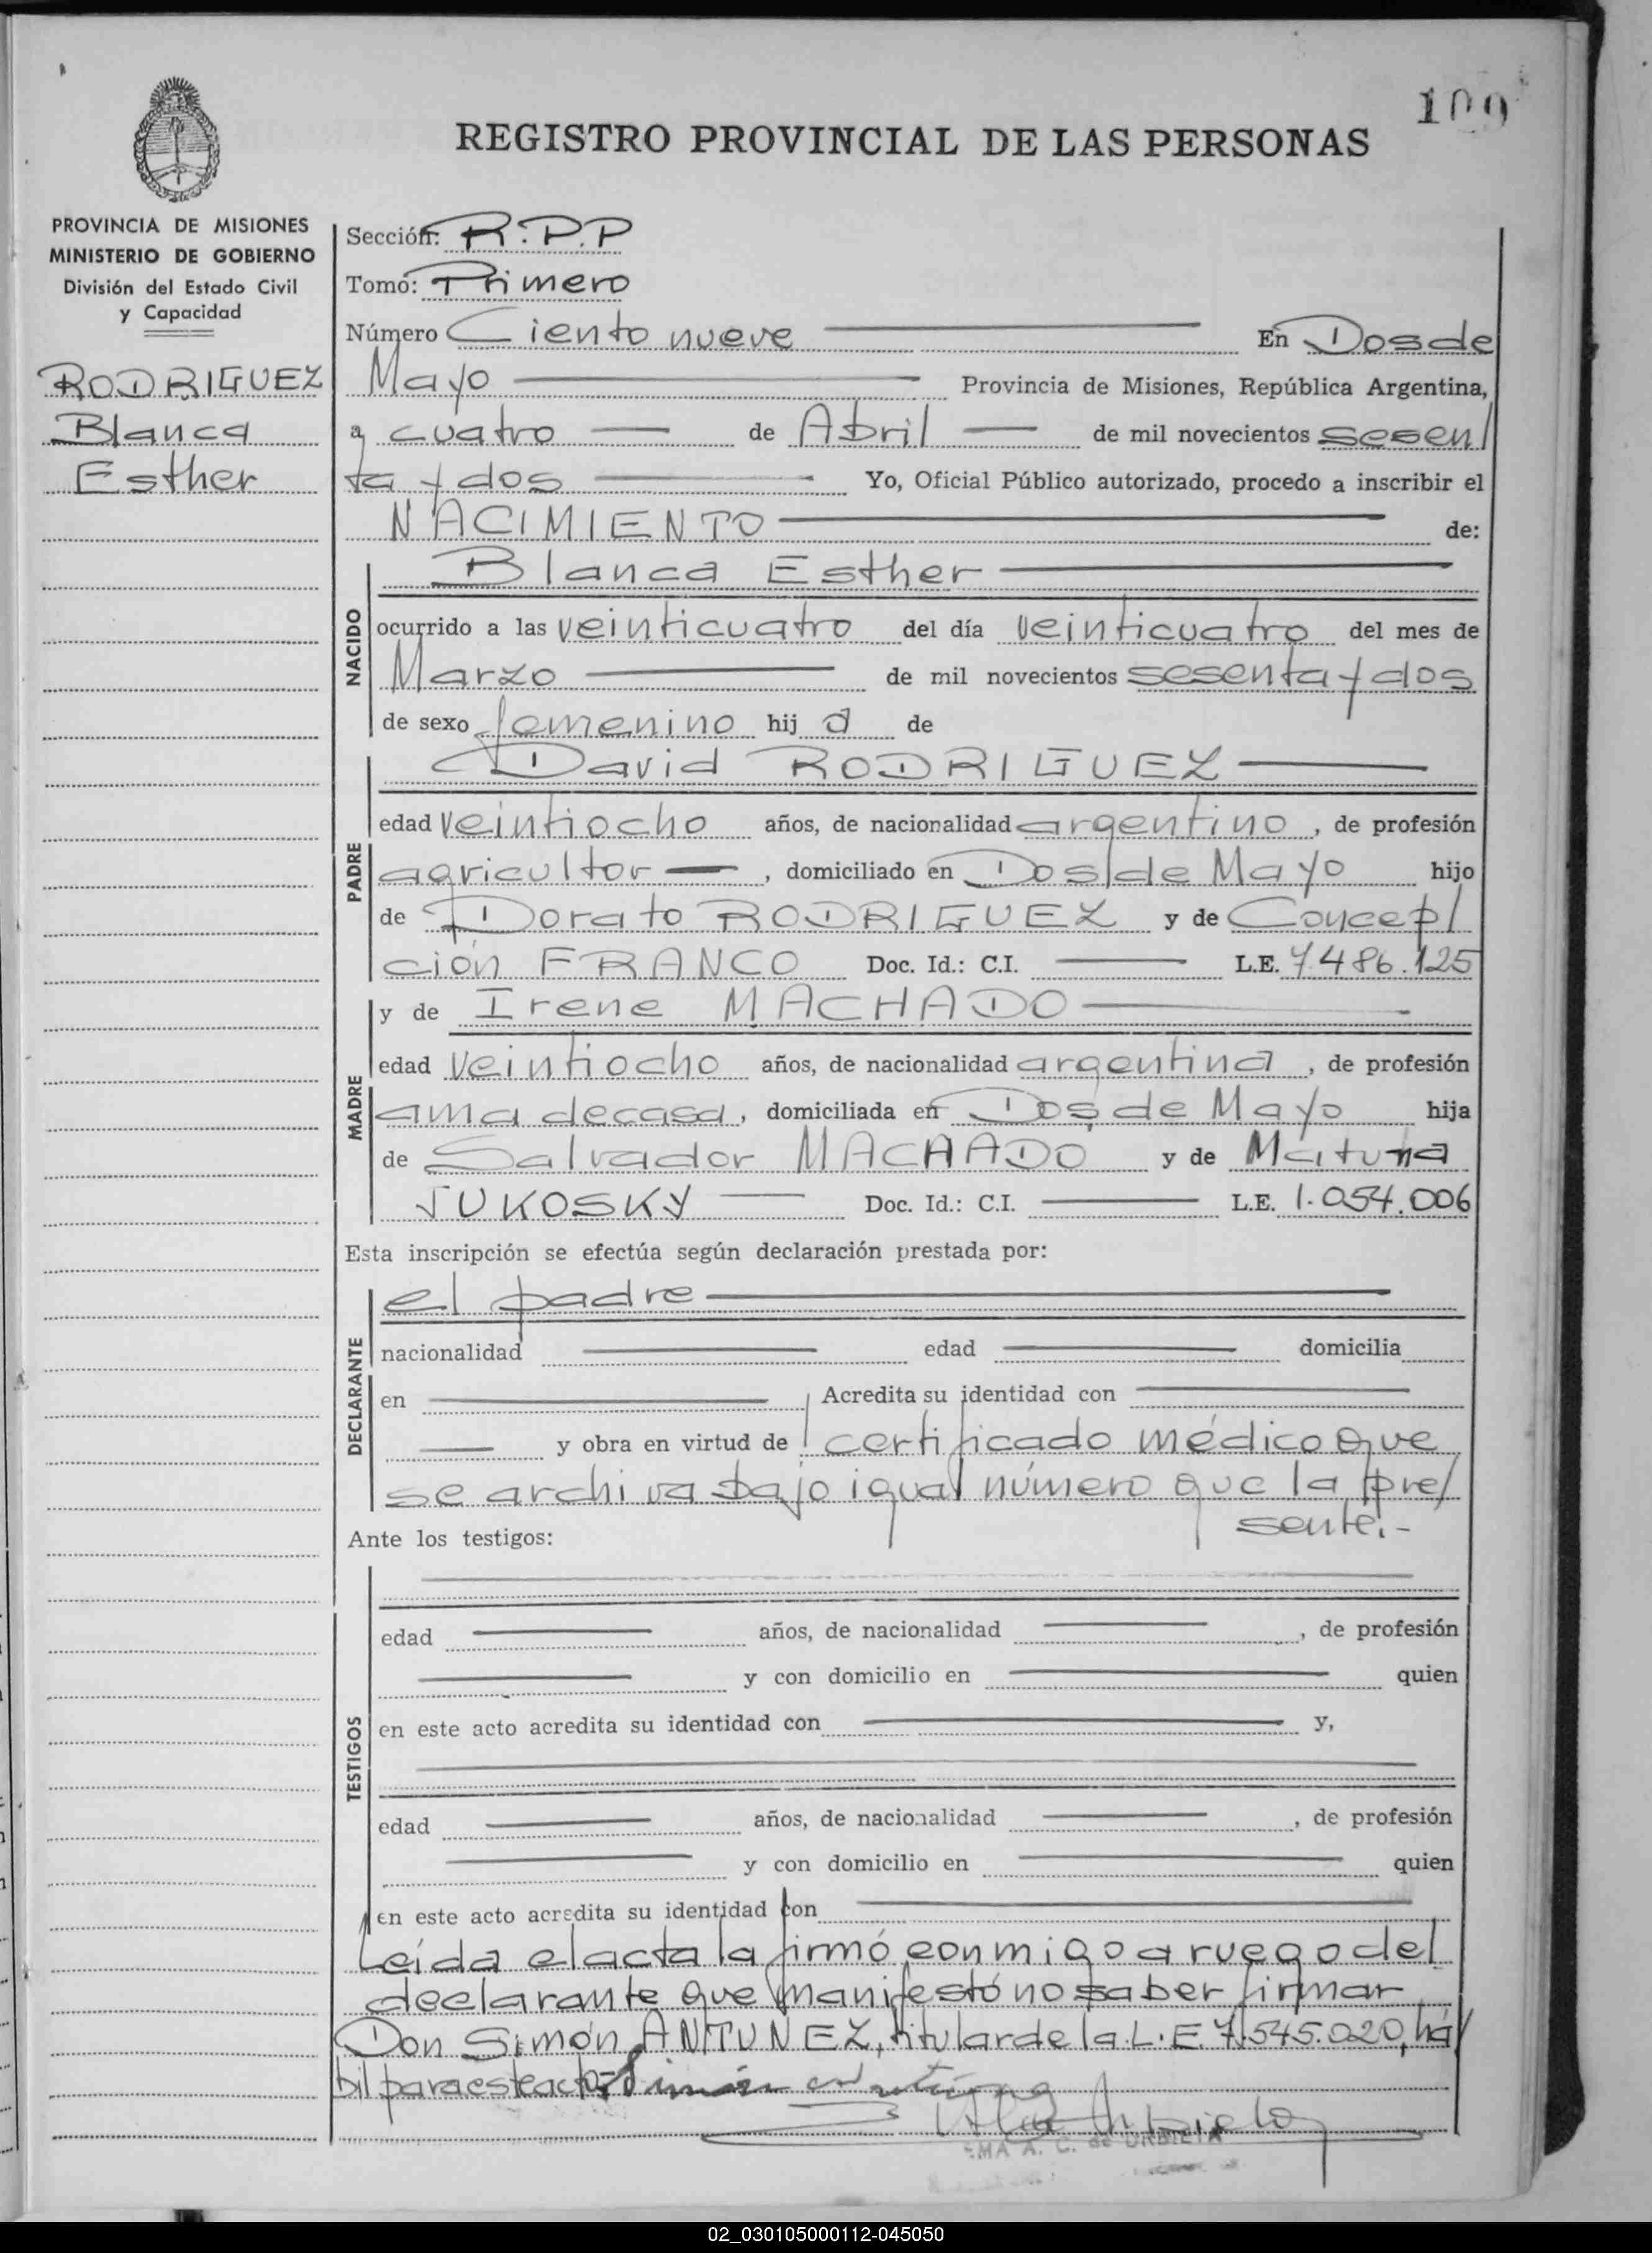 109
REGISTRO PROVINCIAL DE LAS PERSONAS
PROVINCIA DE MISIONES
MINISTERIO DE GOBIERNO
División del Estado Civil
y Capacidad
RODRIGUEZ
Blanca
Esther
Sección: R.P.P
Tomo: Primero
Número Ciento nueve En Dos de
Mayo Provincia de Misiones, República Argentina,
a cuatro de Abril de mil novecientos sesen/
ta y dos Yo, Oficial Público autorizado, procedo a inscribir el
NACIMIENTO de:
NACIDO
Blanca Esther
ocurrido a las veinticuatro del día veinticuatro del mes de
Marzo de mil novecientos sesenta y dos
de sexo femenino hij a de
PADRE
David RODRIGUEZ
edad veintiocho años, de nacionalidad argentino, de profesión
agricultor, domiciliado en Dos de Mayo hijo
de Dorato RODRIGUEZ y de Concep/
ción FRANCO Doc. Id.: C.I. L.E. 7.486.125
MADRE
y de Irene MACHADO
edad veintiocho años, de nacionalidad argentina, de profesión
ama de casa, domiciliada en Dos de Mayo hija
de Salvador MACHADO y de
JUKOSKY Doc. Id.: C.I. L.E. 1.054.006
Esta inscripción se efectúa según declaración prestada por:
DECLARANTE
el padre
nacionalidad edad domicilia
en Acredita su identidad con
y obra en virtud de certificado médico que
se archiva bajo igual número que la pre/
sente.-
Ante los testigos:
TESTIGOS
edad años, de nacionalidad , de profesión
y con domicilio en quien
en este acto acredita su identidad con y,
edad años, de nacionalidad , de profesión
y con domicilio en quien
en este acto acredita su identidad con
Leída el acta la firmó conmigo a ruego del
declarante que manifestó no saber firmar
Don Simón ANTUNEZ, titular de la L.E. 7.545.020, há/
bil para este acto.- Simón
A. C. de URBIETA
02_030105000112-045050